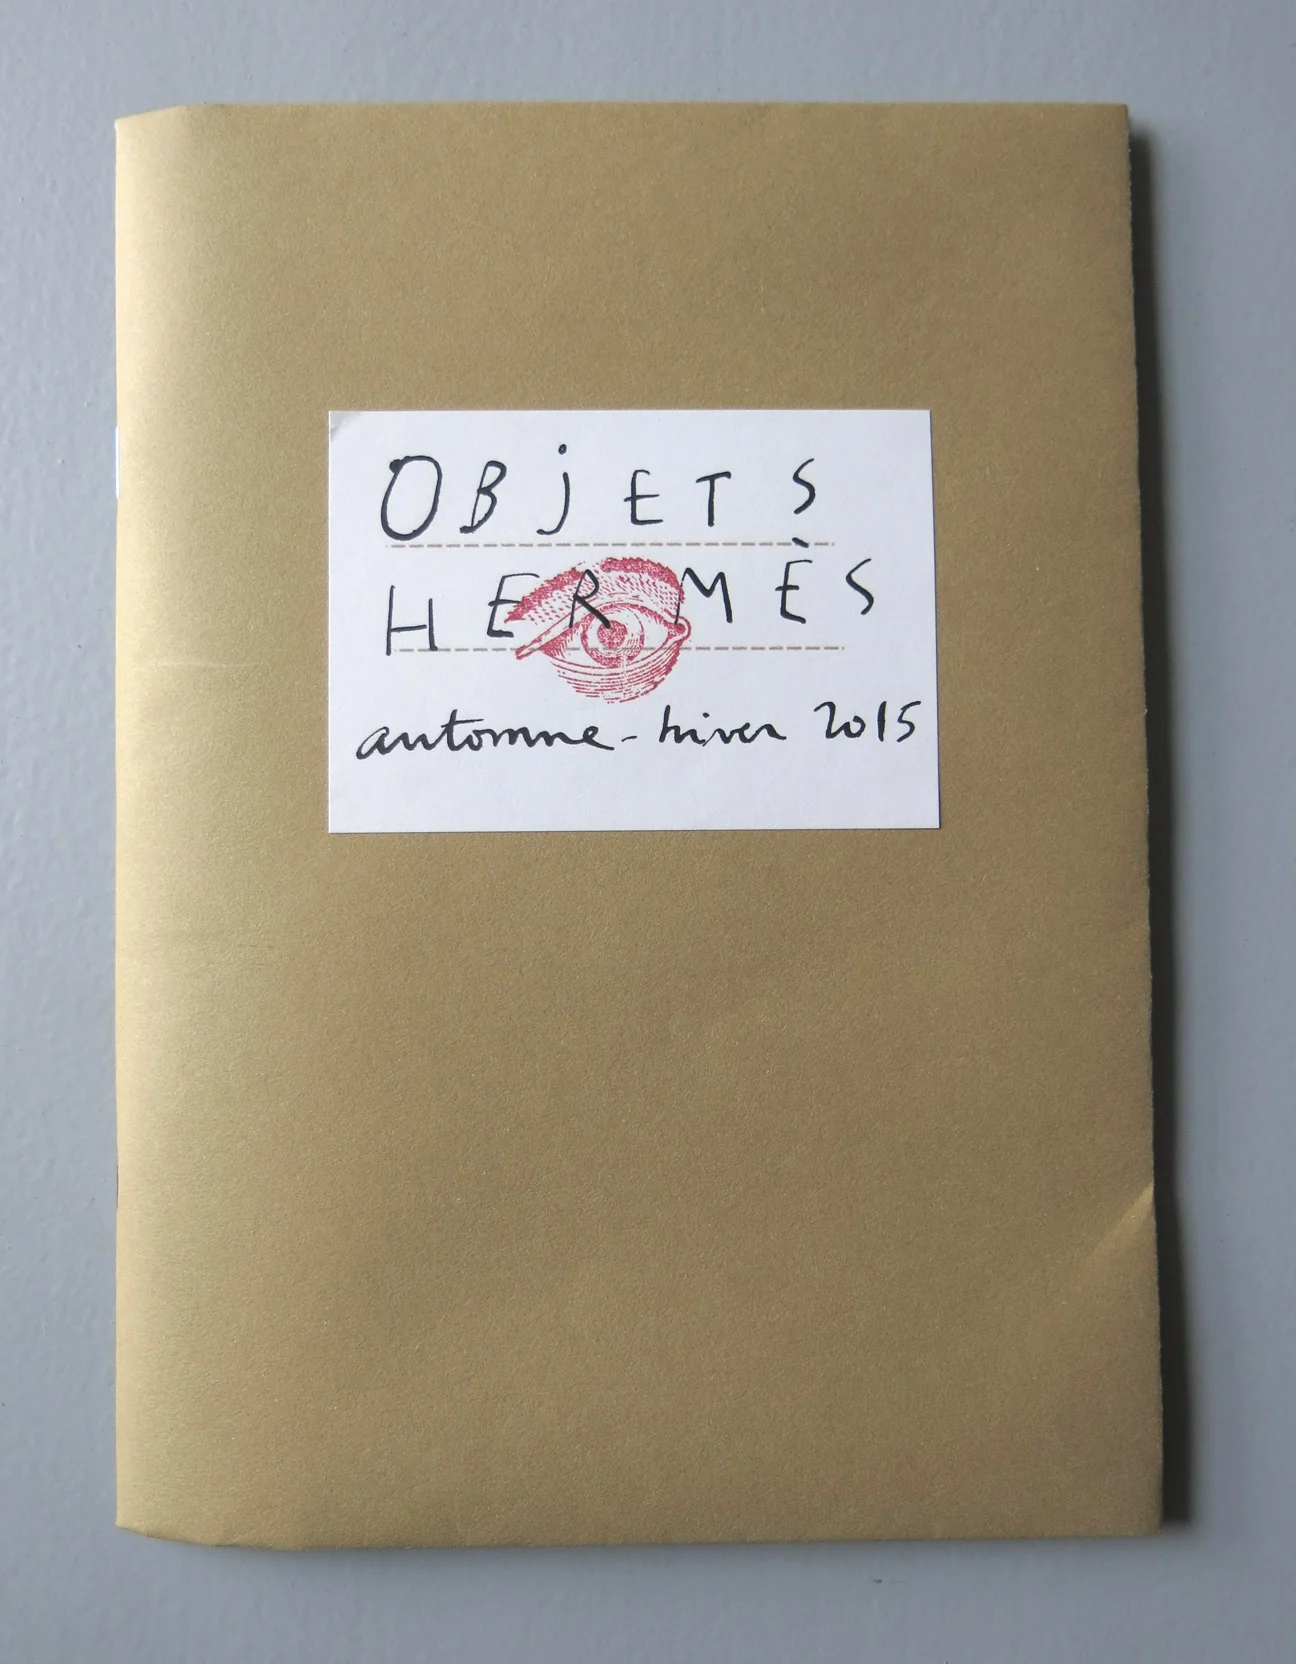 OBjETS
HERMÈS
automne - hiver 2015